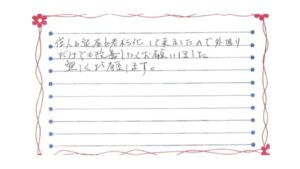 住人も家屋も老朽化して来ましたので外廻り
だけでも改善したくお願いしました
宜しくお願いします。